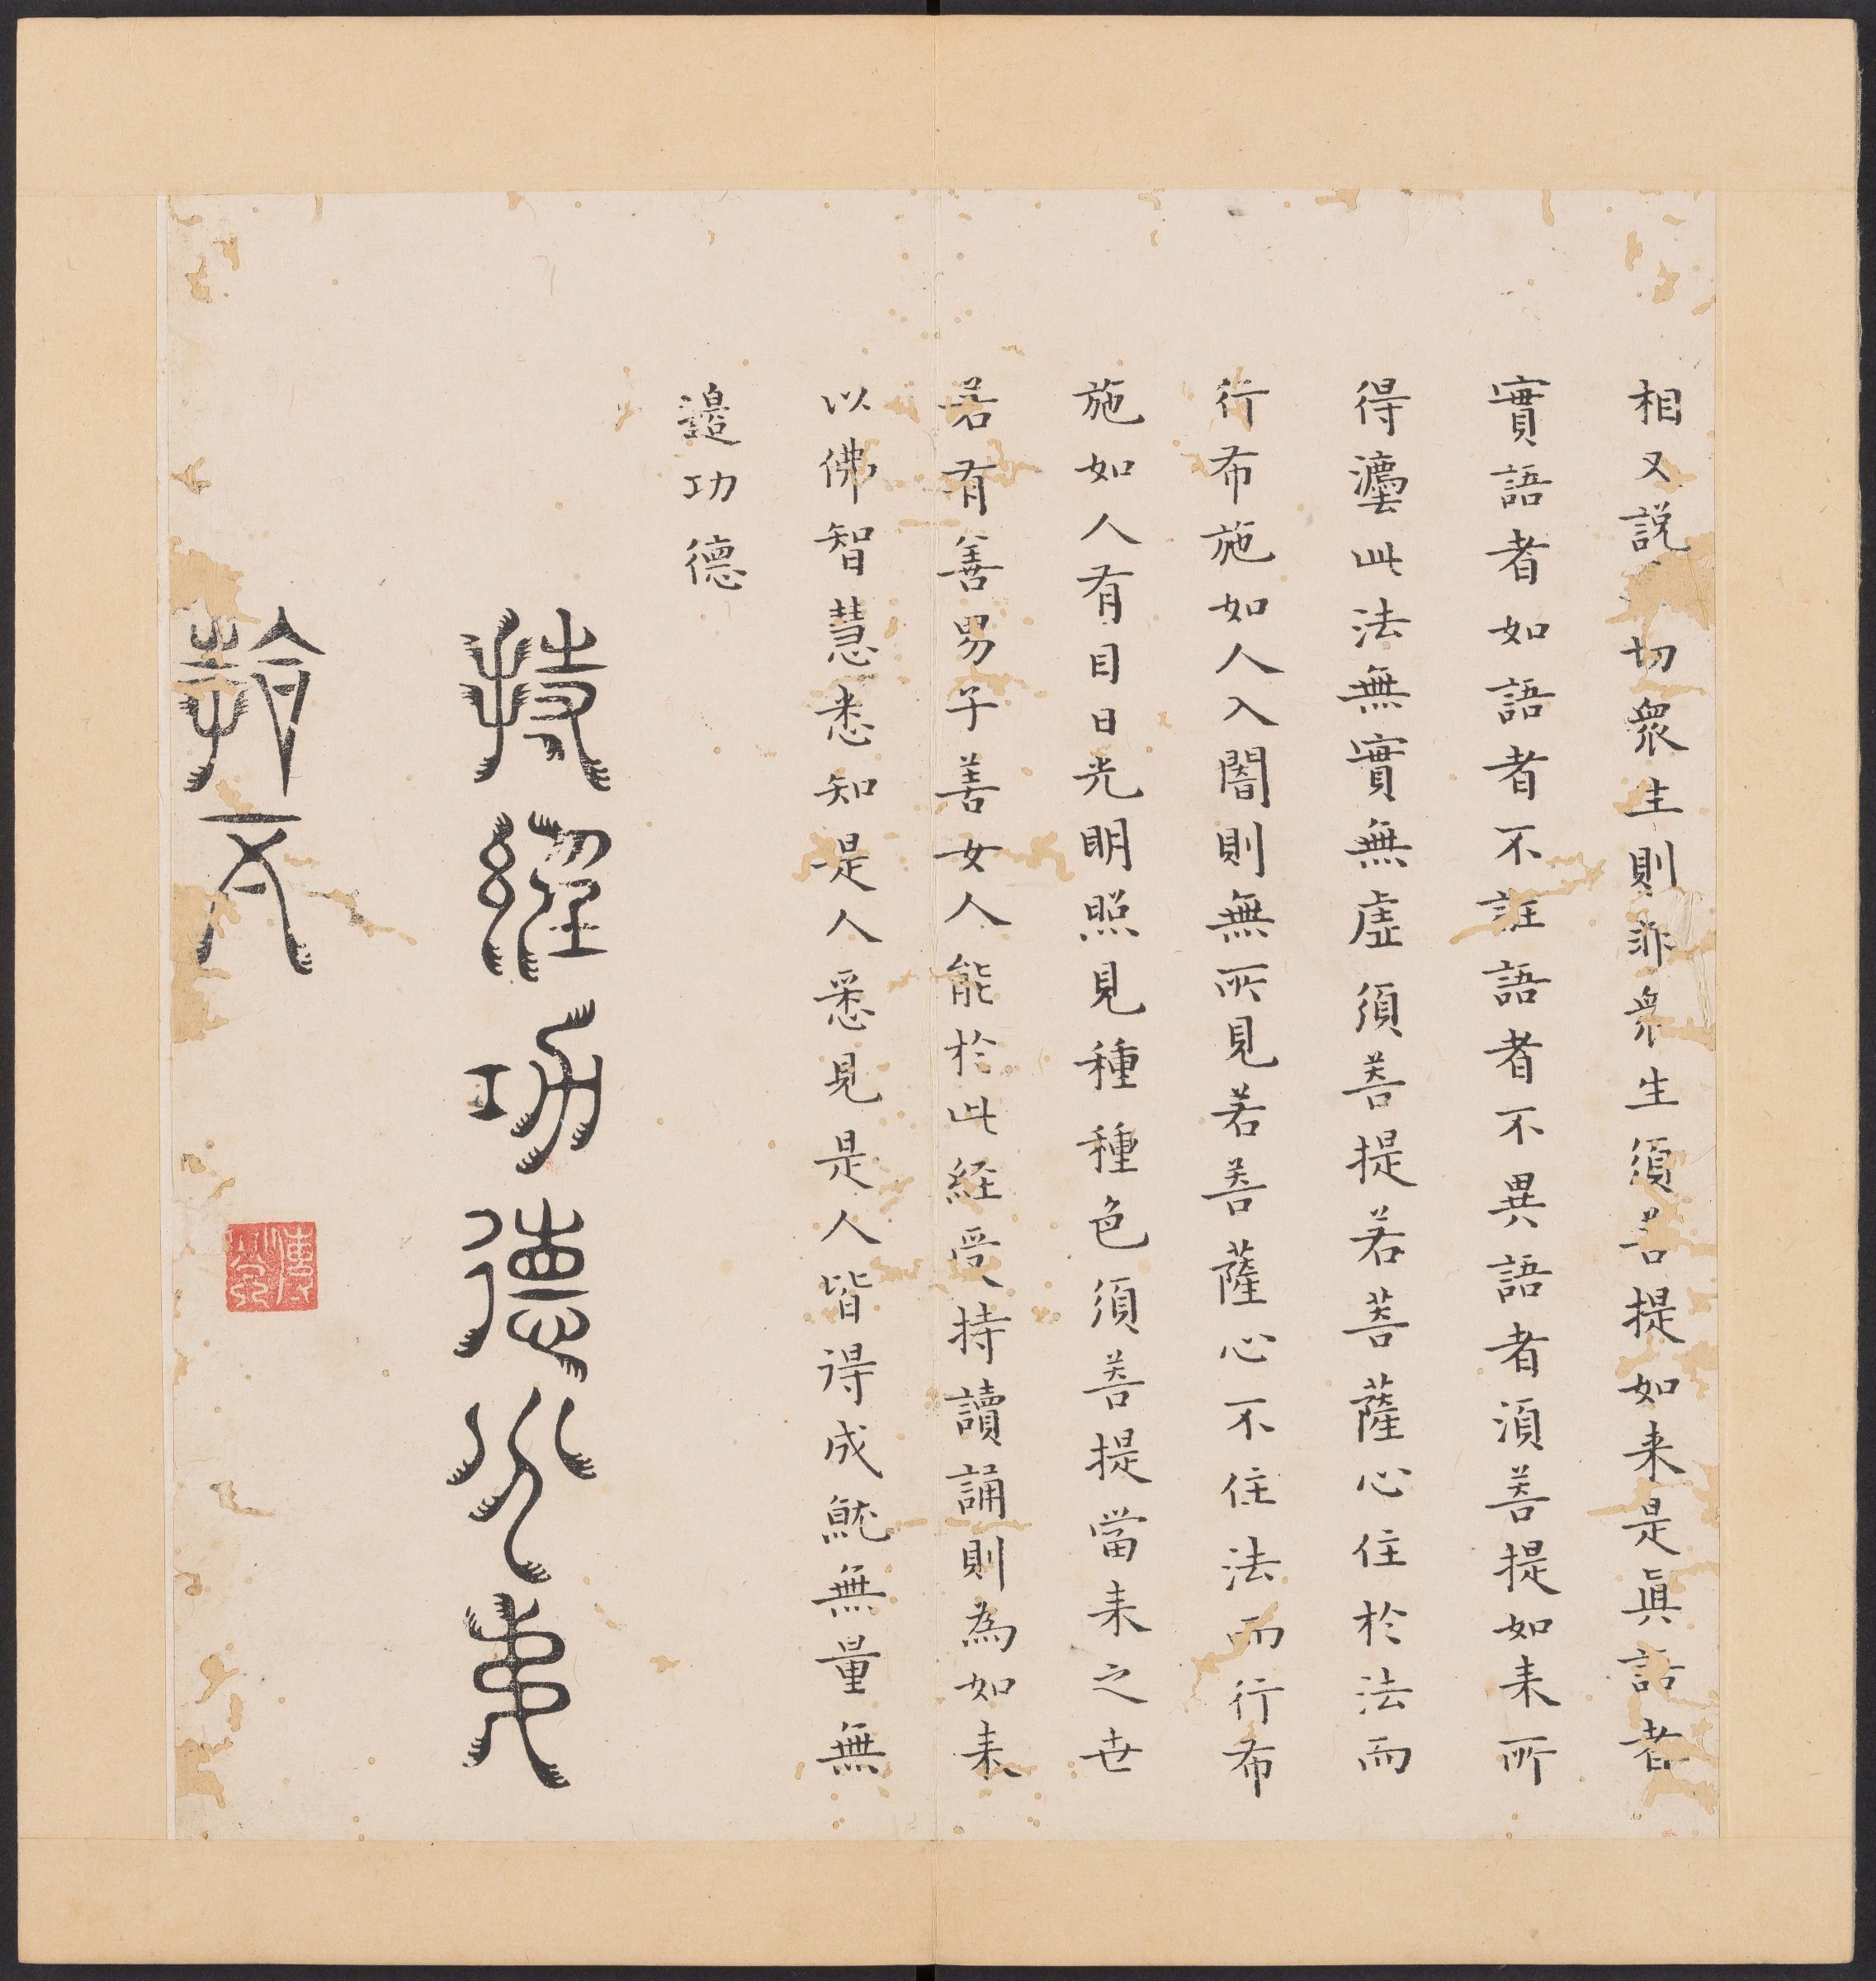 相又説切衆生則非衆生須菩提如来是眞語者
實語者如語者不誑語者不異語者須菩提如来所
得灋此法無實無虛須菩提若菩薩心住於法而
行布施如人入闇則無所見若菩薩心不住法而行布
施如人有目日光明照見種種色須菩提當来之世
若有善男子善女人能於此経受持讀誦則為如来
以佛智慧悉知是人悉見是人皆得成就無量無
邊功德
持經功德分弟
拾五